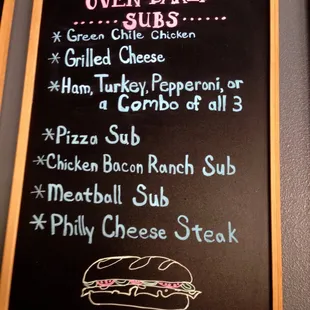 OVEN BAKED
SUBS
* Green Chile Chicken
* Grilled Cheese
* Ham, Turkey, Pepperoni, or
a Combo of all 3
* Pizza Sub
* Chicken Bacon Ranch Sub
* Meatball Sub
* Philly Cheese Steak